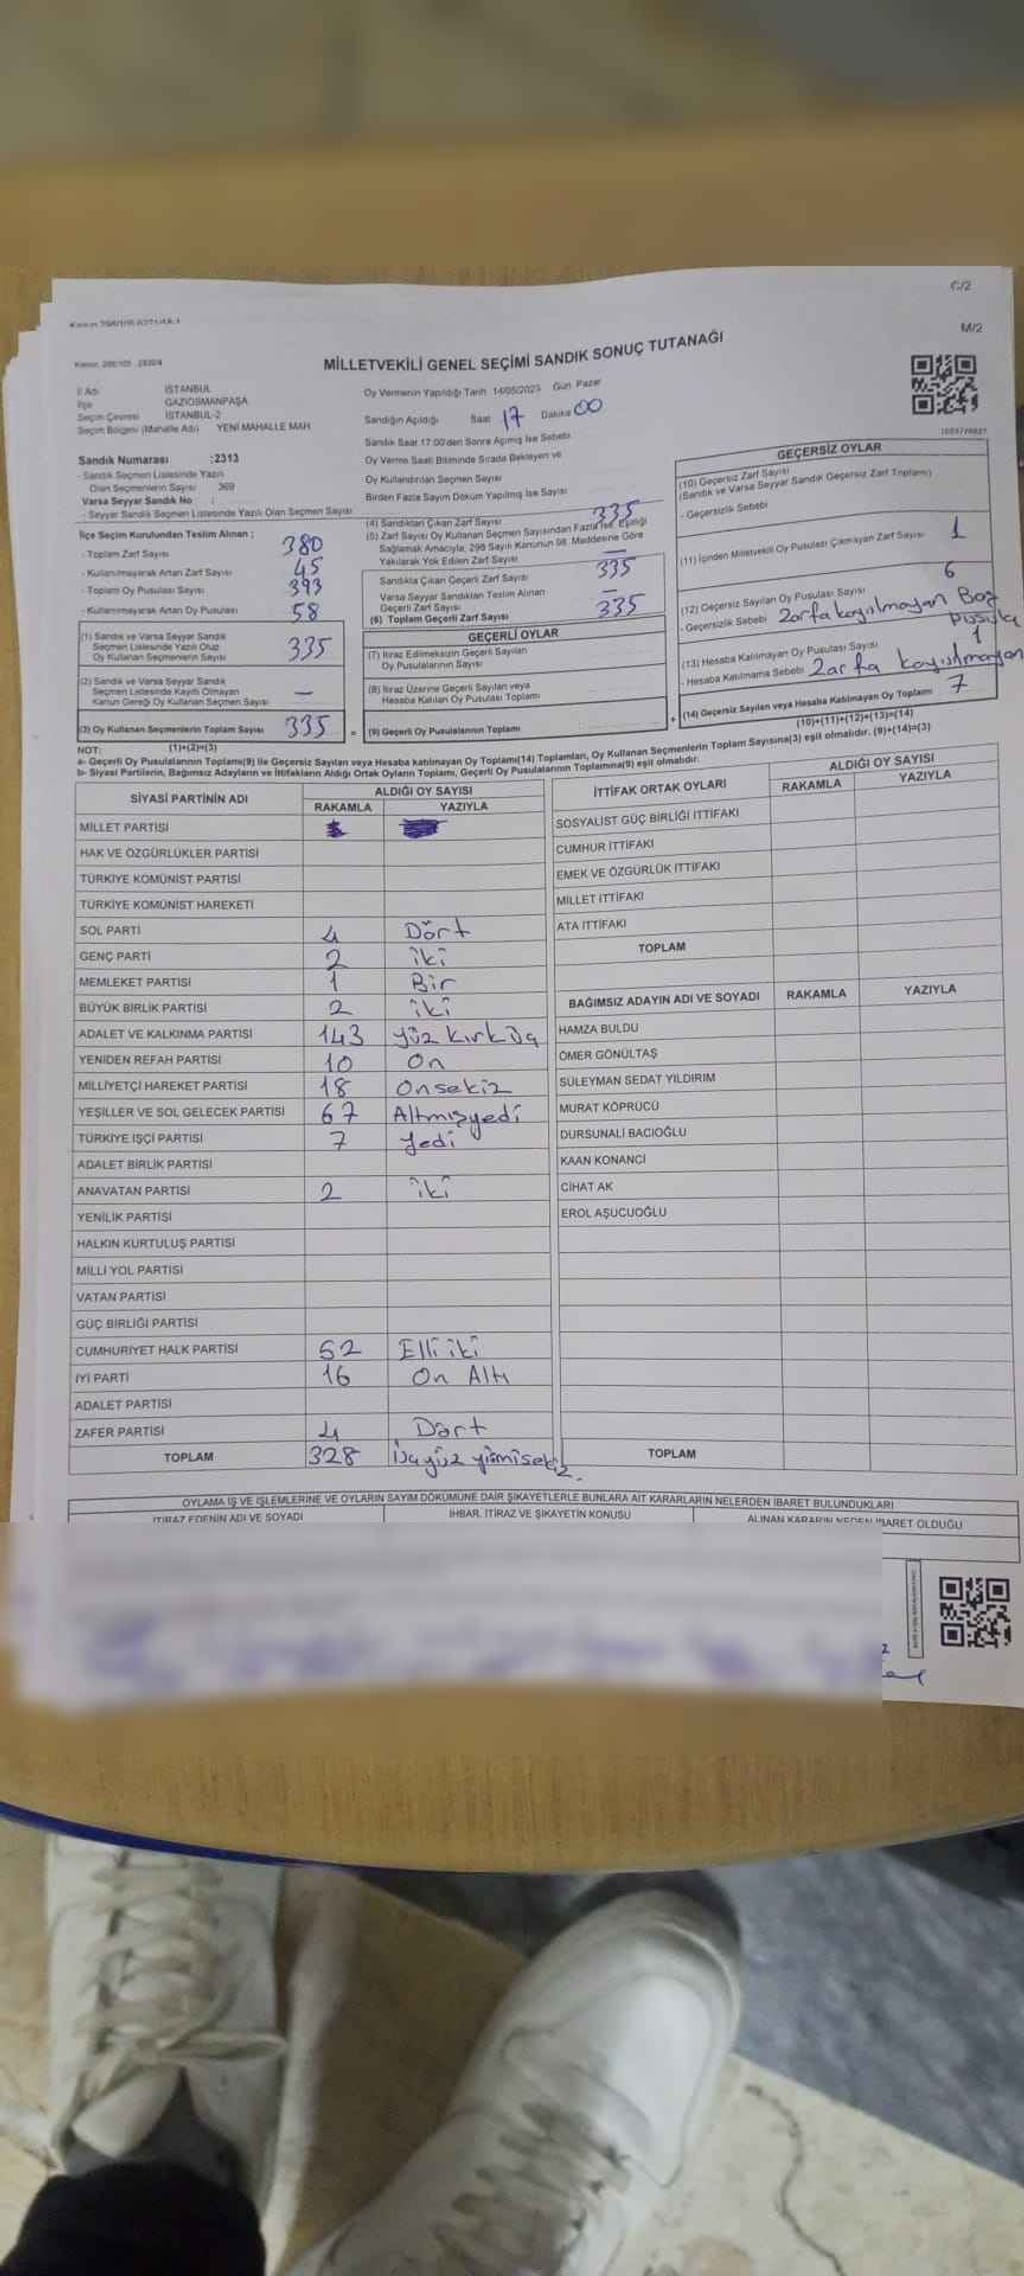 C/2
M/2
MİLLETVEKİLİ GENEL SEÇİMİ SANDIK SONUÇ TUTANAĞI
İl Adı İSTANBUL
İlçe GAZİOSMANPAŞA
Seçim Çevresi İSTANBUL-2
Seçim Bölgesi (Mahalle Adı) YENİ MAHALLE MAH
Sandık Numarası :2313
- Sandık Seçmen Listesinde Yazılı
Olan Seçmenlerin Sayısı 369
Varsa Seyyar Sandık No :
- Seyyar Sandık Seçmen Listesinde Yazılı Olan Seçmen Sayısı
Oy Vermenin Yapıldığı Tarih 14/05/2023 Gün Pazar
Sandığın Açıldığı Saat 17 Dakika 00
Sandık Saat 17:00'den Sonra Açılmış İse Sebebi
Oy Verme Saati Bitiminde Sırada Bekleyen ve
Oy Kullandırılan Seçmen Sayısı
Birden Fazla Sayım Döküm Yapılmış İse Sayısı
İlçe Seçim Kurulundan Teslim Alınan ;
- Toplam Zarf Sayısı 380
- Kullanılmayarak Artan Zarf Sayısı 45
- Toplam Oy Pusulası Sayısı 393
- Kullanılmayarak Artan Oy Pusulası 58
(1) Sandık ve Varsa Seyyar Sandık
Seçmen Listesinde Yazılı Olup
Oy Kullanan Seçmenlerin Sayısı 335
(2) Sandık ve Varsa Seyyar Sandık
Seçmen Listesinde Kayıtlı Olmayan
Kanun Gereği Oy Kullanan Seçmen Sayısı —
(3) Oy Kullanan Seçmenlerin Toplam Sayısı 335 =
(1)+(2)=(3)
(4) Sandıktan Çıkan Zarf Sayısı 335
(5) Zarf Sayısı Oy Kullanan Seçmen Sayısından Fazla İse, Eşitliği
Sağlamak Amacıyla, 298 Sayılı Kanunun 98. Maddesine Göre
Yakılarak Yok Edilen Zarf Sayısı —
Sandıkta Çıkan Geçerli Zarf Sayısı 335
Varsa Seyyar Sandıktan Teslim Alınan
Geçerli Zarf Sayısı —
(6) Toplam Geçerli Zarf Sayısı 335
GEÇERLİ OYLAR
(7) İtiraz Edilmeksizin Geçerli Sayılan
Oy Pusulalarının Sayısı
(8) İtiraz Üzerine Geçerli Sayılan veya
Hesaba Katılan Oy Pusulası Toplamı
(9) Geçerli Oy Pusulalarının Toplamı +
GEÇERSİZ OYLAR
(10) Geçersiz Zarf Sayısı
(Sandık ve Varsa Seyyar Sandık Geçersiz Zarf Toplamı)
- Geçersizlik Sebebi
(11) İçinden Milletvekili Oy Pusulası Çıkmayan Zarf Sayısı 1
(12) Geçersiz Sayılan Oy Pusulası Sayısı 6
- Geçersizlik Sebebi Zarfa koyulmayan Boş Pusula
(13) Hesaba Katılmayan Oy Pusulası Sayısı 1
- Hesaba Katılmama Sebebi Zarfa koyulmayan
(14) Geçersiz Sayılan veya Hesaba Katılmayan Oy Toplamı 7
(10)+(11)+(12)+(13)=(14)
NOT:
a- Geçerli Oy Pusulalarının Toplamı(9) ile Geçersiz Sayılan veya Hesaba katılmayan Oy Toplamı(14) Toplamları, Oy Kullanan Seçmenlerin Toplam Sayısına(3) eşit olmalıdır. (9)+(14)=(3)
b- Siyasi Partilerin, Bağımsız Adayların ve İttifakların Aldığı Ortak Oyların Toplamı, Geçerli Oy Pusulalarının Toplamına(9) eşit olmalıdır.
SİYASİ PARTİNİN ADI ALDIĞI OY SAYISI
RAKAMLA YAZIYLA
MİLLET PARTİSİ
HAK VE ÖZGÜRLÜKLER PARTİSİ
TÜRKİYE KOMÜNİST PARTİSİ
TÜRKİYE KOMÜNİST HAREKETİ
SOL PARTİ 4 Dört
GENÇ PARTİ 2 iki
MEMLEKET PARTİSİ 1 Bir
BÜYÜK BİRLİK PARTİSİ 2 iki
ADALET VE KALKINMA PARTİSİ 143 yüz kırk üç
YENİDEN REFAH PARTİSİ 10 On
MİLLİYETÇİ HAREKET PARTİSİ 18 Onsekiz
YEŞİLLER VE SOL GELECEK PARTİSİ 67 Altmışyedi
TÜRKİYE İŞÇİ PARTİSİ 7 Yedi
ADALET BİRLİK PARTİSİ
ANAVATAN PARTİSİ 2 iki
YENİLİK PARTİSİ
HALKIN KURTULUŞ PARTİSİ
MİLLİ YOL PARTİSİ
VATAN PARTİSİ
GÜÇ BİRLİĞİ PARTİSİ
CUMHURİYET HALK PARTİSİ 52 Elli iki
İYİ PARTİ 16 On Altı
ADALET PARTİSİ
ZAFER PARTİSİ 4 Dört
TOPLAM 328 Üçyüz yirmisekiz.
İTTİFAK ORTAK OYLARI ALDIĞI OY SAYISI
RAKAMLA YAZIYLA
SOSYALİST GÜÇ BİRLİĞİ İTTİFAKI
CUMHUR İTTİFAKI
EMEK VE ÖZGÜRLÜK İTTİFAKI
MİLLET İTTİFAKI
ATA İTTİFAKI
TOPLAM
BAĞIMSIZ ADAYIN ADI VE SOYADI RAKAMLA YAZIYLA
HAMZA BULDU
ÖMER GÖNÜLTAŞ
SÜLEYMAN SEDAT YILDIRIM
MURAT KÖPRÜCÜ
DURSUNALİ BACIOĞLU
KAAN KONANCİ
CİHAT AK
EROL AŞUCUOĞLU
TOPLAM
OYLAMA İŞ VE İŞLEMLERİNE VE OYLARIN SAYIM DÖKÜMÜNE DAİR ŞİKAYETLERLE BUNLARA AİT KARARLARIN NELERDEN İBARET BULUNDUKLARI
İTİRAZ EDENİN ADI VE SOYADI İHBAR, İTİRAZ VE ŞİKAYETİN KONUSU ALINAN KARARIN NEDEN İBARET OLDUĞU